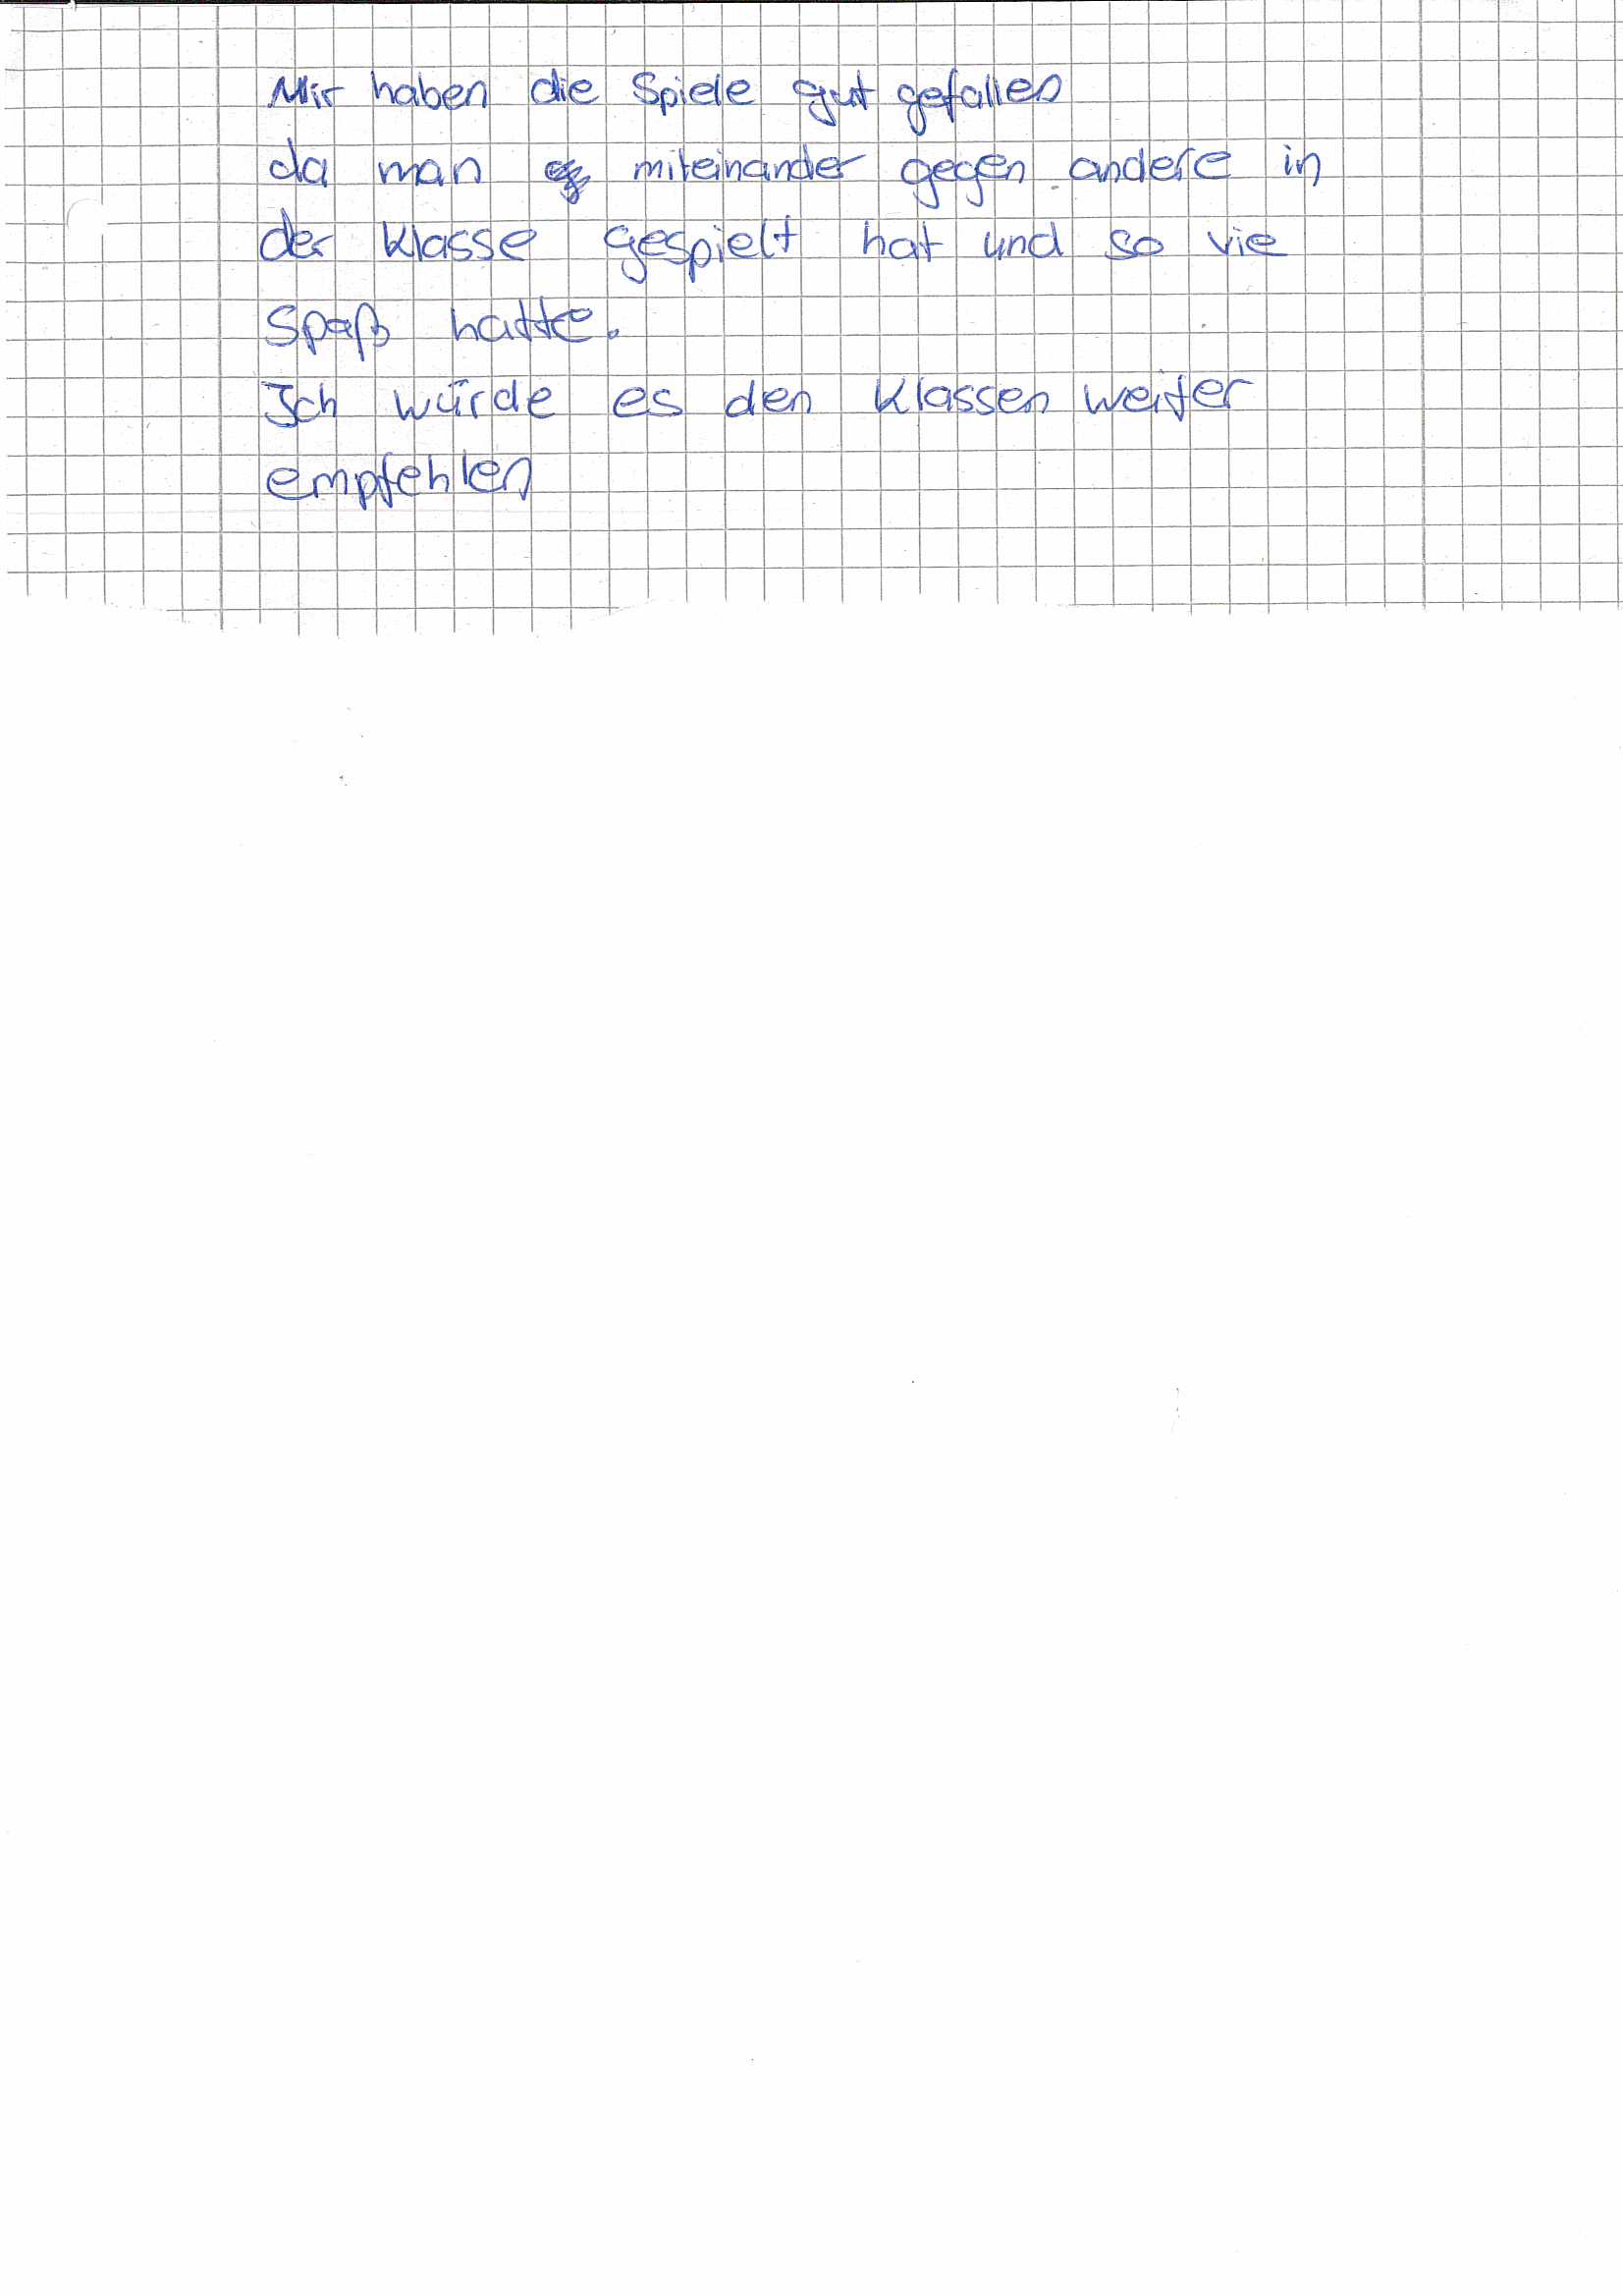 Mir haben die Spiele gut gefallen
da man miteinander gegen andere in
der Klasse gespielt hat und so vie
Spaß hatte.
Ich würde es den Klassen weiter
empfehlen